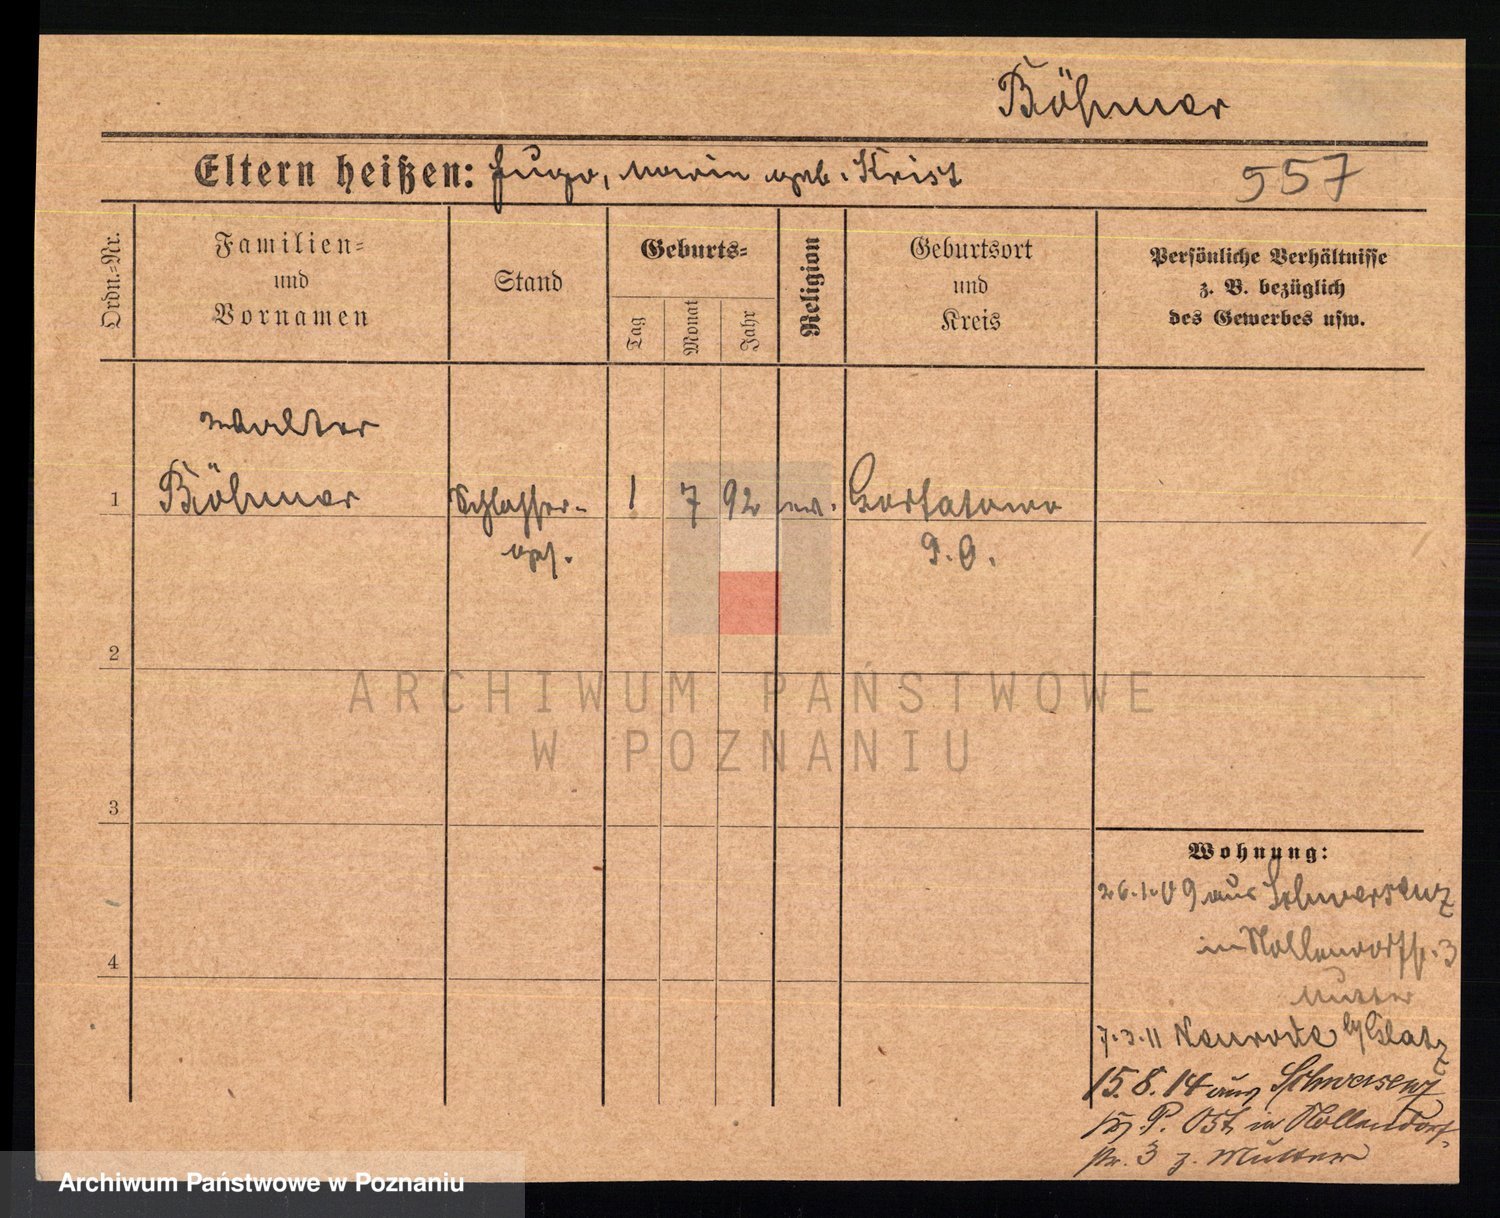 Böhmer
Eltern heißen: Hugo, Marie geb. Krist
557
Ordn.=Nr.
Familien=
und
Vornamen
Stand
Geburts=
Tag
Monat
Jahr
Religion
Geburtsort
und
Kreis
Persönliche Verhältnisse
z. B. bezüglich
des Gewerbes usw.
Walter
1 Böhmer Schlosser- 1 7 92 ev. Gortatowo
P. O.
2
3
4
ARCHIWUM PAŃSTWOWE
W POZNANIU
Wohnung:
26.1.09 aus Schwersenz
in Nollendorfstr. 3
Mutter
7.3.11 Neurode b/Glatz
15.8.14 aus Schwersenz
P. Ost in Nollendorf-
str. 3 z. Mutter
Archiwum Państwowe w Poznaniu